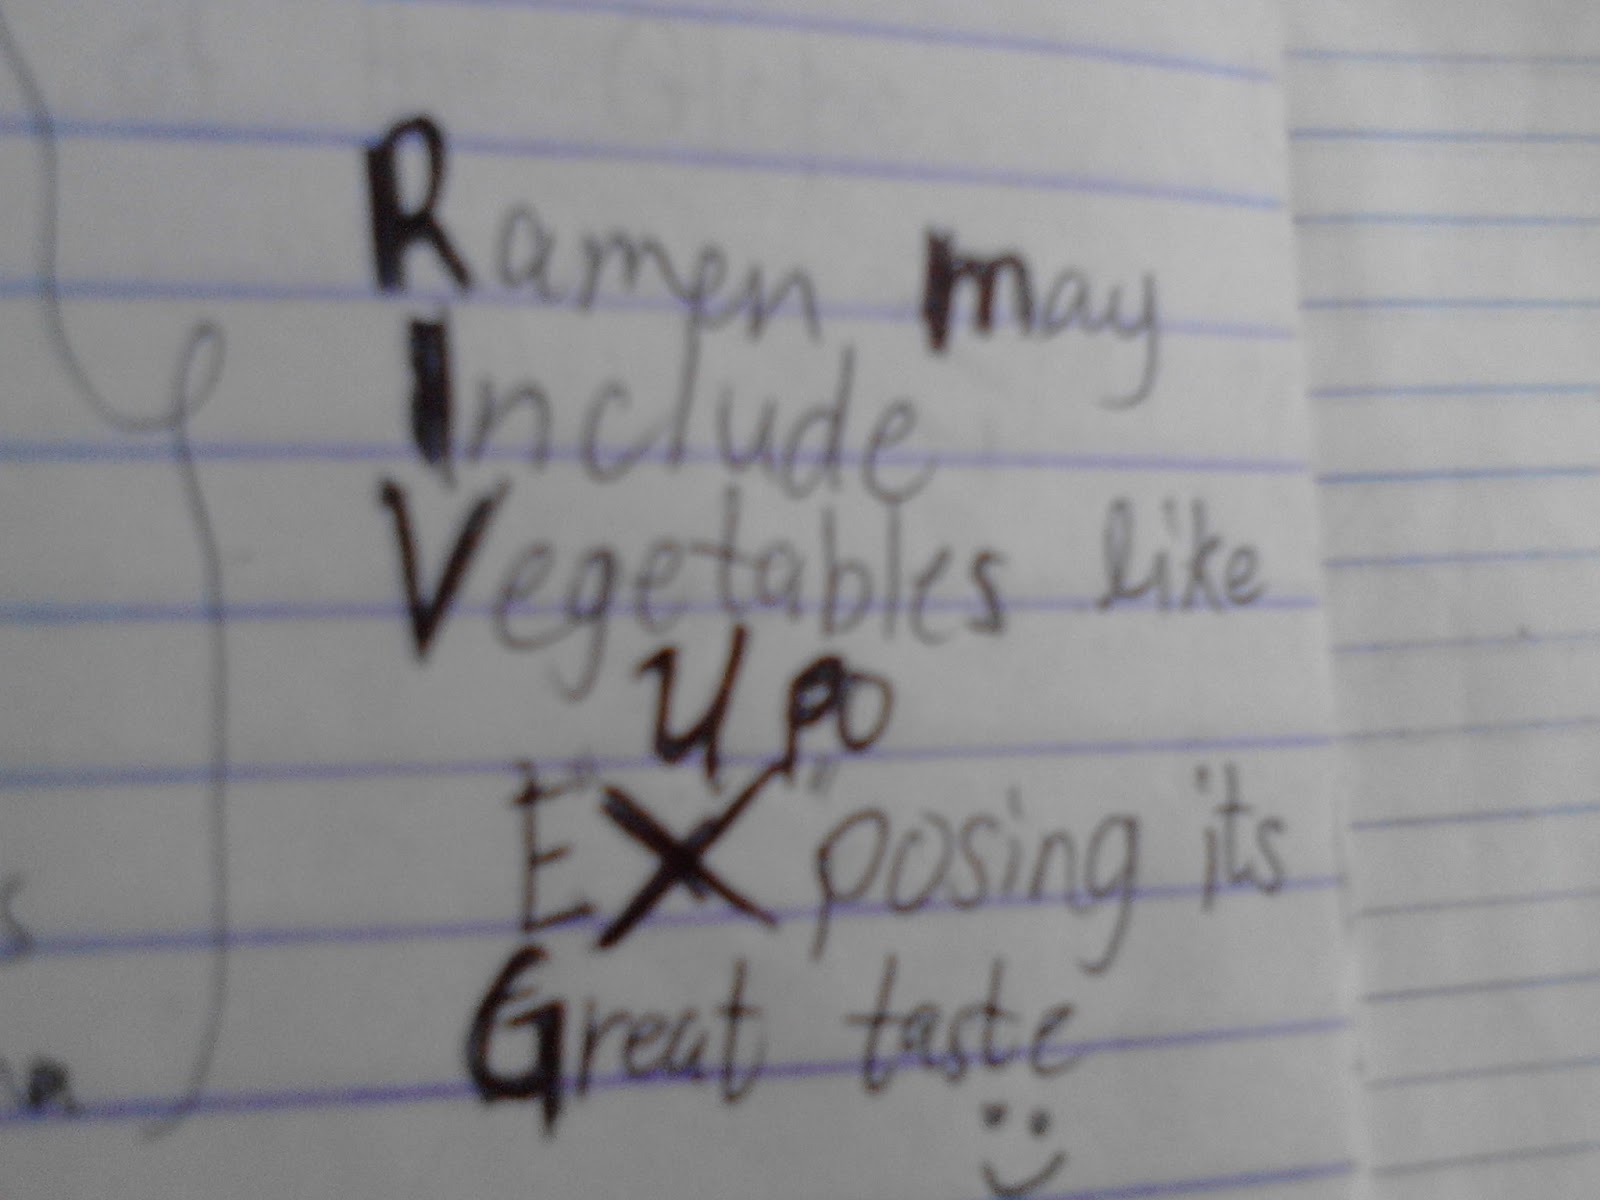 Ramen may
Include
Vegetables like
Upo
EXposing its
Great taste